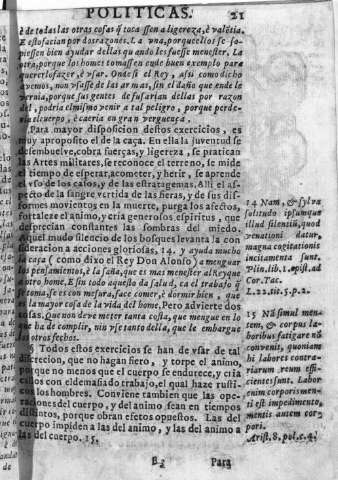 POLITICAS. 21
è de todas las otras cosas q̃ toca ssen a ligereza, è valẽtia.
E esto facian por dos razones. La vna, porque ellos se so-
piessen bien ayudar dellas quando les fuesse menester. La
otra, porque los homes tomassen ende buen exemplo para
quererlo fazer, è vsar. Onde si el Rey, assi como dicho
avemos, non vsasse de las armas, sin el daño que ende le
vernia, porque sus gentes de susarian dellas por razon
del, podria el mismo venir a tal peligro, porque perde-
ria el cuerpo, è caeria en gran verguença.
Para mayor disposicion destos exercicios, es
muy aproposito el de la caça. En ella la juventud se
desembuelve, cobra fuerças, y ligereza, se pratican
las Artes militares, se reconoce el terreno, se mide
el tiempo de esperar, acometer, y herir, se aprende
el vso de los casos, y de las estratagemas. Alli el as-
pecto de la sangre vertida de las fieras, y de sus dif-
formes movientos en la muerte, purga los afectos,
fortaleze el animo, y cria generosos espiritus, que
desprecian constantes las sombras del miedo.
Aquel mudo silencio de los bosques levanta la con
sideracion a acciones gloriosas, 14. y ayuda mucho
la caça ( como dixo el Rey Don Alonso) a menguar
los pensamientos, è la saña, que es mas menester al Rey que
a otro home. E sin todo aquesto da salud, ca el trabajo q̃
se toma, se es con mesura, face comer, è dormir bien, que
es la mayor cosa de la vida del home. Pero advierte dos
cosas. Que non deve meter tanta costa, que mengue en lo
que ha de complir, nin vse tanto della, que le embargue
los otros fechos.
§ Todos estos exercicios se han de vsar de tal
discrecion, que no hagan fiero, y torpe el animo,
porque no menos que el cuerpo se endurece, y cria
callos con el demasiado trabajo, el qual haze rusti-
cos los hombres. Conviene tambien que las ope-
raciones del cuerpo, y del animo sean en tiempos
distintos, porque obran efectos opuestos. Las del
cuerpo impiden a las del animo, y las del animo a
las del cuerpo. 15.
14 Nam, & sylva
solitudo ipsumque
illud silentiũ, quod
venationi datur,
magna cogitationis
incitamenta sunt.
Plin. lib. 1. epist. ad
Cor. Tac.
15 Nã simul men-
tem, & corpus la-
boribus fatigare nõ
convenit, quoniam
hi labores contra-
riarum rerum effi-
cientes sunt. Labor
enim corporis men-
ti est impedimento,
mentis autem cor-
pori.
Arist. 8. pol. c. 4.
B 3 Para